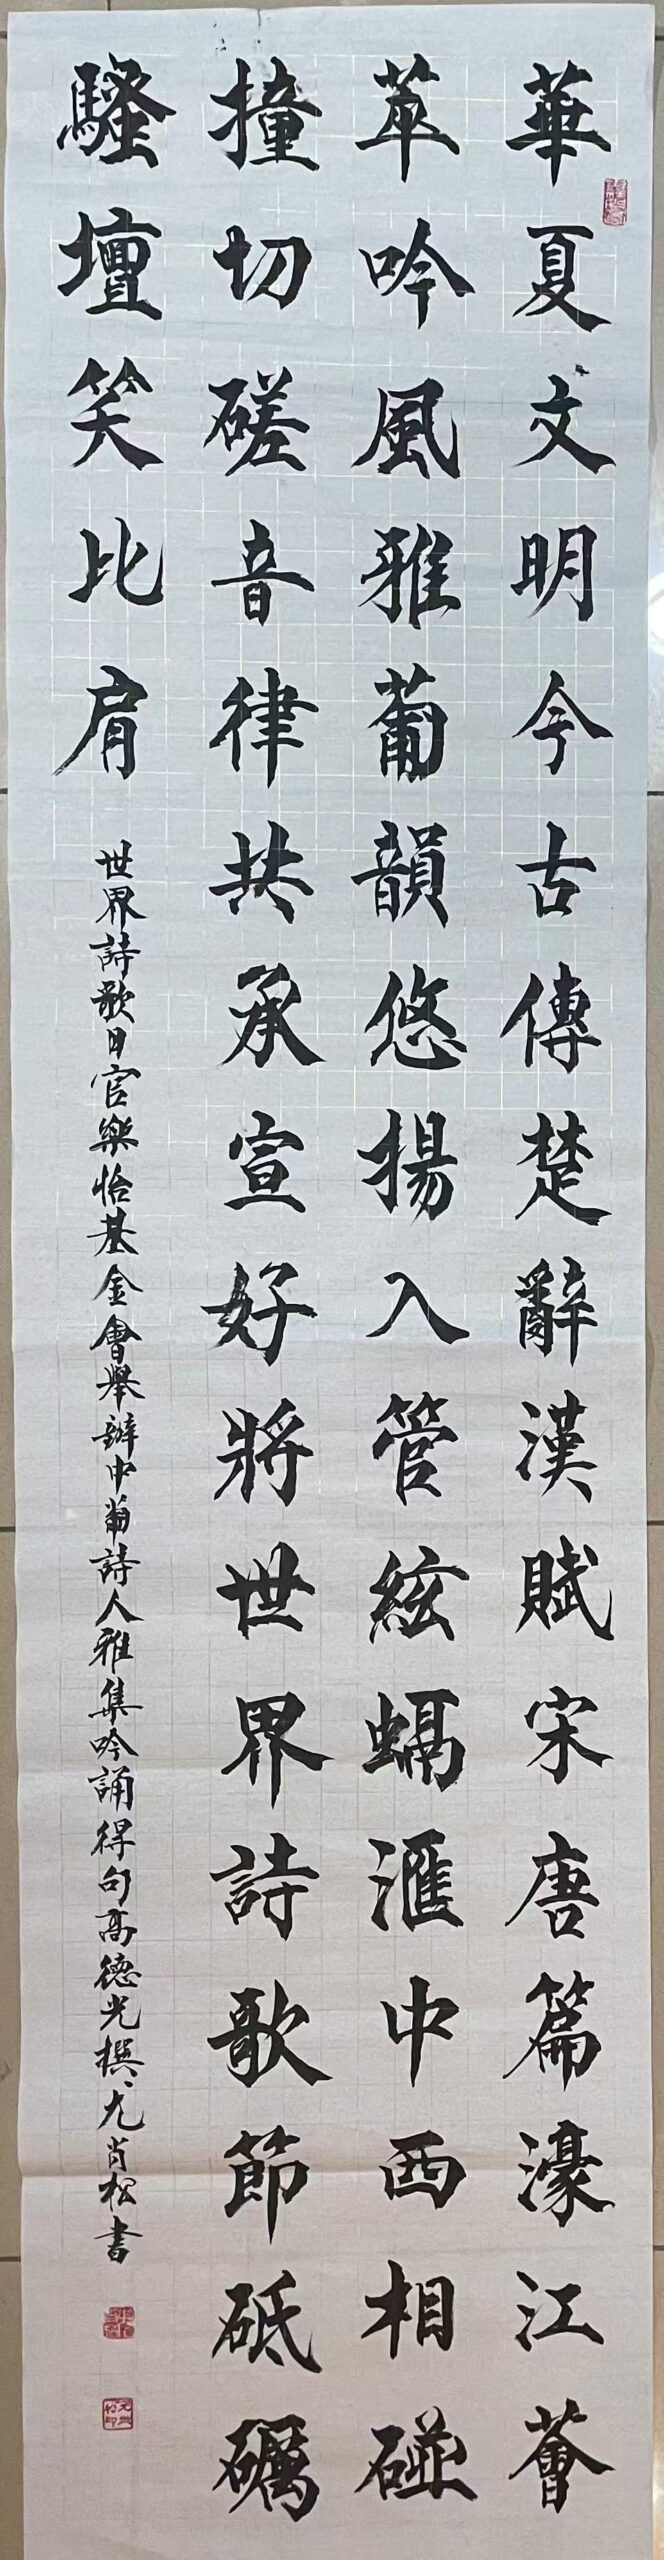 華夏文明今古傳楚辭漢賦宋唐篇濠江薈
萃吟風雅葡韻悠揚入管絃蠣滙中西相碰
撞切磋音律共承宣好將世界詩歌節砥礪
騷壇笑比肩
世界詩歌日官樂怡基金會舉辦中葡詩人雅集吟誦得句高德光撰尤肖松書